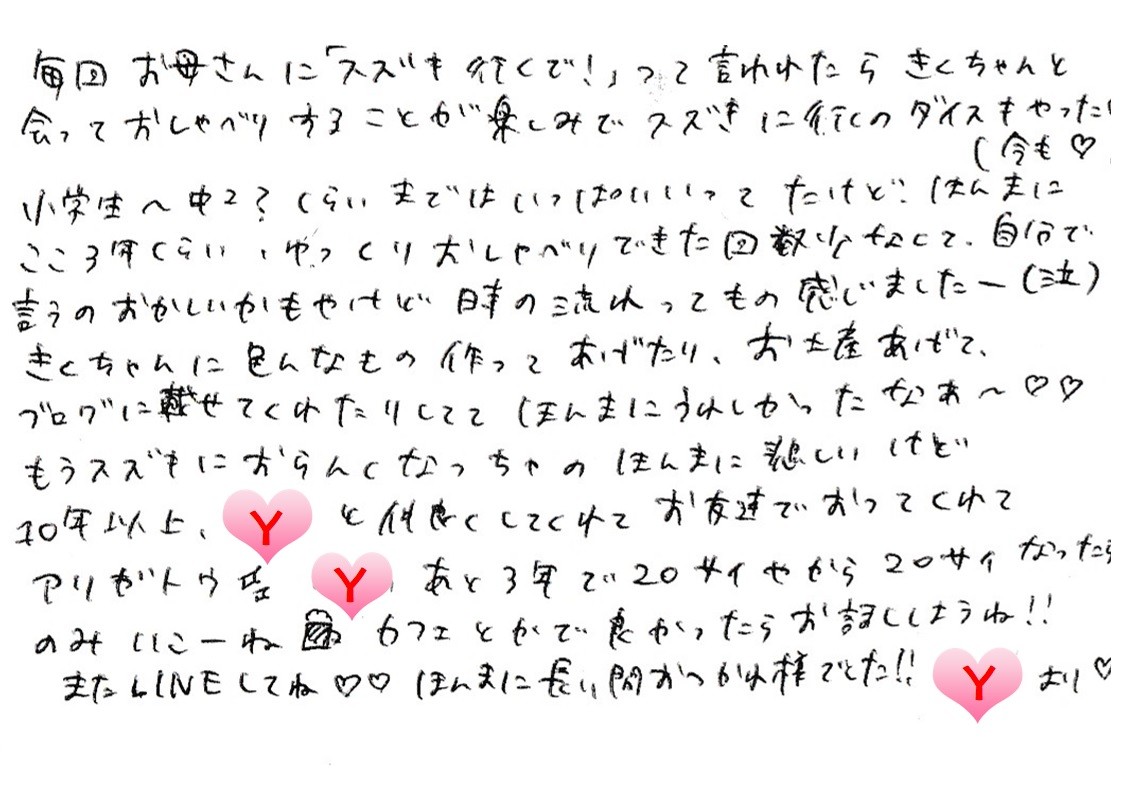 毎回 お母さんに「スズキ行くで!」って言われたら きくちゃんと
会っておしゃべりすることが楽しみで スズキに行くの ダイスキやった
(今も♡
小学生〜中2?くらいまでは いっぱいいって たけど? ほんまに
ここ3年くらい、ゆっくりおしゃべりできた回数少なくて、自分で
言うのおかしいかもやけど 時の流れってもの 感じましたー(泣)
きくちゃんに 色んなもの 作って あげたり、お土産あげて、
ブログに載せてくれたりしてて ほんまにうれしかったなあ〜♡♡
もうスズキにおらんくなっちゃの ほんまに 悲しい けど
10年以上、Y と仲良くしてくれて お友達でおってくれて
アリガトウ Y あと3年で20サイやから 20サイ なったら
のみいこーね カフェとかで良かったらお話ししようね!!
またLINEしてね♡♡ ほんまに長い間おつかれ様でした!! Y より♡